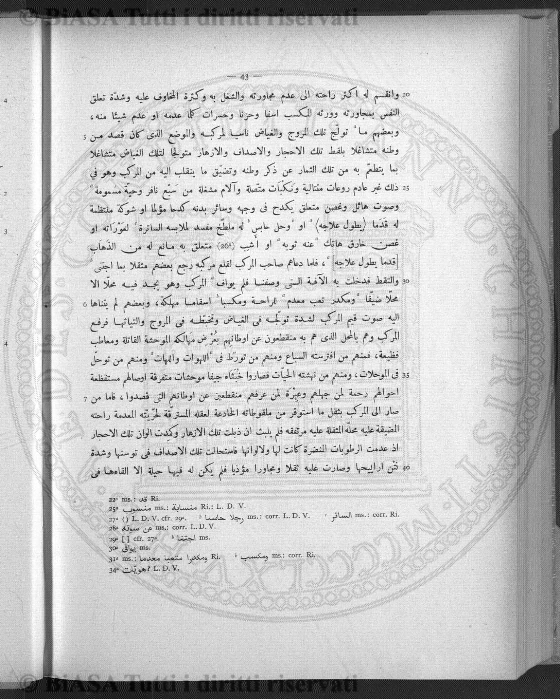 © BiASA Tutti i diritti riservati
— 43 —
وانقسم له اكثر راحته الى عدم مجاورته والشغل به وكثرة المخاوف عليه وشدّة تعلّق 20
النفس بمجاورته وورثه المكسب اسفا وحزنا وحسرات كلما عدمه او عدم شيئا منه،
5 وبعضهم تولّج تلك المروج والغياض ناسيا لمركبه والموضع الذى كان قصد من
وطنه متشاغلا بلقط تلك الاحجار والاصداف والازهار متولّجا لتلك الغياض متشاغلا
بما يتطعّم به من تلك الثمار عن ذكر وطنه وتضيق ما ينقلب اليه من المركب وهو فى
ذلك غير عادم روعات متتالية ونكبات متّصلة وآلام مشغلة من سبُع نافر وحيّة مسمومة 25
وصوت هائل وغصن متعلق يكدح فى وجهه وسائر بدنه كدحا مؤلما او شوكة ملتظمة
له قدما (يطول علاجه) او وحل حابس له ملطّخ مفسد لملابسه الساترة لعوراته او
غصن خارق هاتك عنه ثوبه او أشِب (26ª) متعلق به مانع له من الذهاب
[قدما يطول علاجه]، فلما دعاهم صاحب المركب لقلع مركبه رجع بعضهم مثقلا بما اجتنى
والتقط فدخلت به الآفة التى وصفنا فلم يواف المركب وهو يجد فيه محلّا الا 30
محلّا ضيّقا ومكدر تعب معدم للراحة ومكسبا اسقاما مهلكة، وبعضهم لم يتناها 6
اليه صوت قيم المركب لشدة توغّله فى الغياض وتخبّطه فى المروج والتيائها فرفع
المركب وهم بالمحل الذى هم به منقطعون عن اوطانهم بعُرض مهالكه الموحشة القاتلة ومعاطب
فظيعة، فمنهم من افترسته السباع ومنهم من تورّط فى اللهوات والمهات ومنهم من توحّل
فى الوحلات، ومنهم من نهشته الحيّات فصاروا جيفا موحشات متفرقة اوصالهم مستفظعة 35
احوالهم رحمة لمن جهلهم وعبرة لمن عرفهم منقطعين عن اوطانهم التى قصدوا، فاما من 7
صار الى المركب بثقل ما استوقر من ملقوطاته الخادعة لعقله المسترقة لحرّيّته المعدمة راحته
المضيقة عليه محلّه المثقلة عليه مرتفقه فلم يلبث ان ذبلت تلك الازهار وكمدت الوان تلك الاحجار
اذ عدمت الرطوبات المنضرة كانت لها ولالوانها فاستحالت تلك الاصداف فى توسنها وشدة
نتن اراييحها وصارت عليه ثقلا ومجاورا مؤذيا فلم يكن له فيها حيلة الا القاءها فى 40
22ª ms.: قد Ri.
25ª منسوب ms.: منسابة Ri.: L. D. V.
27ª () L. D. V. cfr. 29ª. رجلا حابسا ms.: corr. L. D. V. السائر ms.: corr. Ri.
28ª عن صوته ms.: corr. L. D. V.
29ª [ ] cfr. 27ª. اجتنيا ms.
30ª يوافى ms.
31ª ms.: ومكدرا متعب معدما Ri. ومكسب ms.: corr. Ri.
34ª هويّات? L. D. V.
© BiASA Tutti i diritti riservati